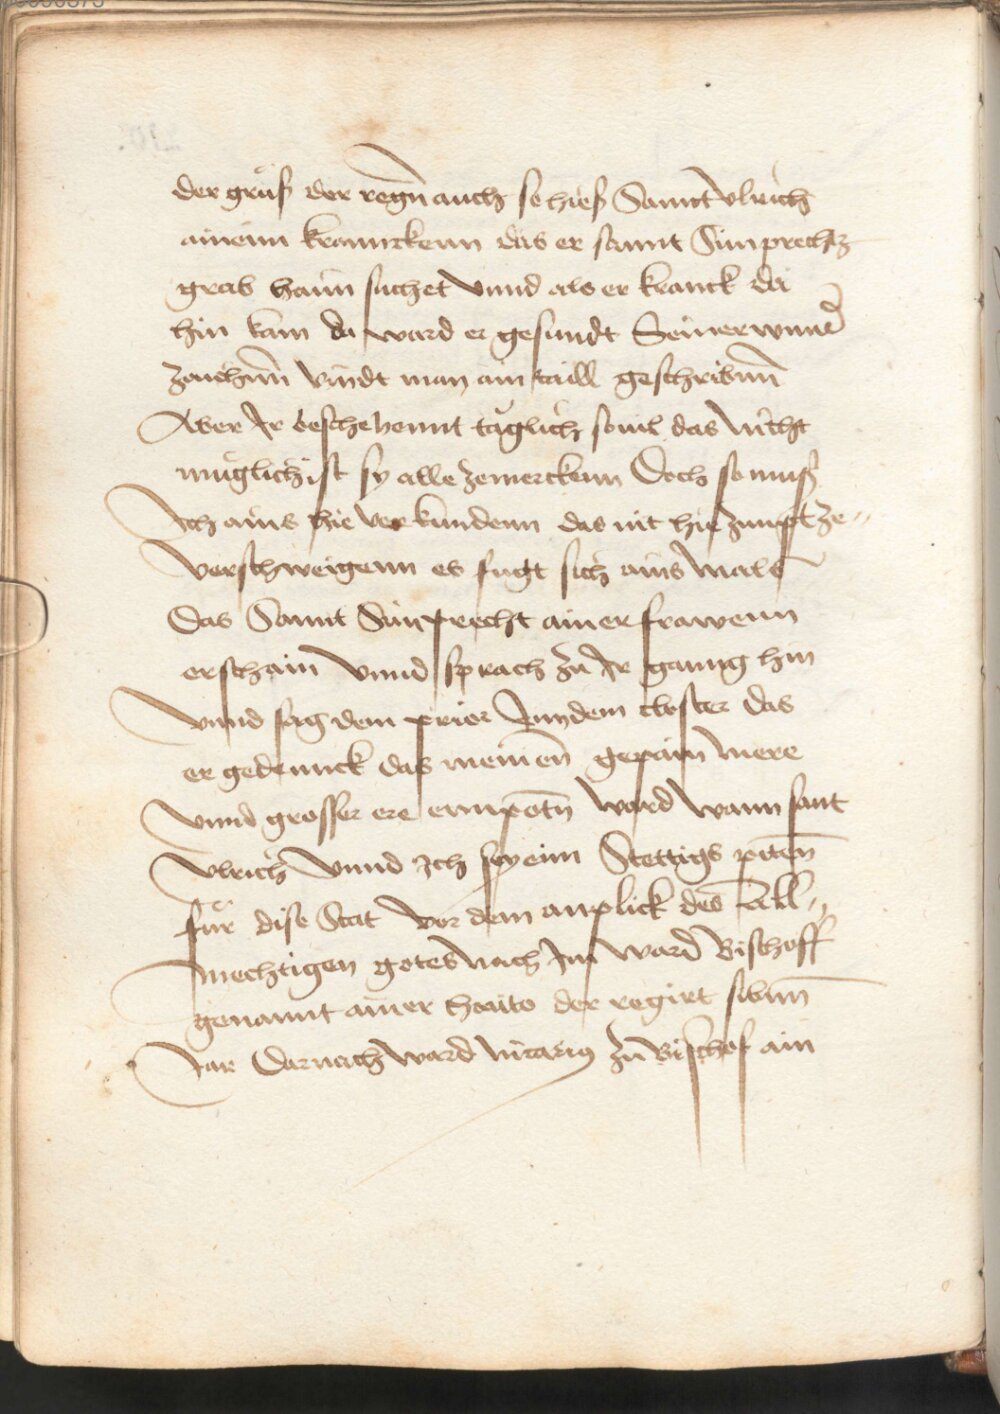 der gruß der regn auch so hieß Sannt Ulrich
ainem kranncken das er sannt Simprechtz
grab haim suchet Vnnd als er kranck da
hin kam da ward er gesundt Seiner wund
zaichnn vindt man ain taill geschribnn
Aber Ir beschehennt täglich souil das nicht
muglich ist sy alle zemercken Doch so muß
Ich ains hie verkundenn das nit hie ze
verschweigenn es fugt sich ains mals
Das Sannt Simprecht ainer frawenn
erschain Vnnd sprach zu Ir ganng hin
Vnnd sag dem prior Inn dem closter das
er gedennck das meinen gepain mere
Vnnd grosser ere erenpotn werd wann sant
Vlrich Vnnd Ich sey einn Stettigs piten
für dise Stat vor dem anplick des All
mechtigen gotes Nach Im ward Bischoff
genannt ainer Hanto der regirt sibnn
Jar Darnach ward Nicarius zu Bischof ain